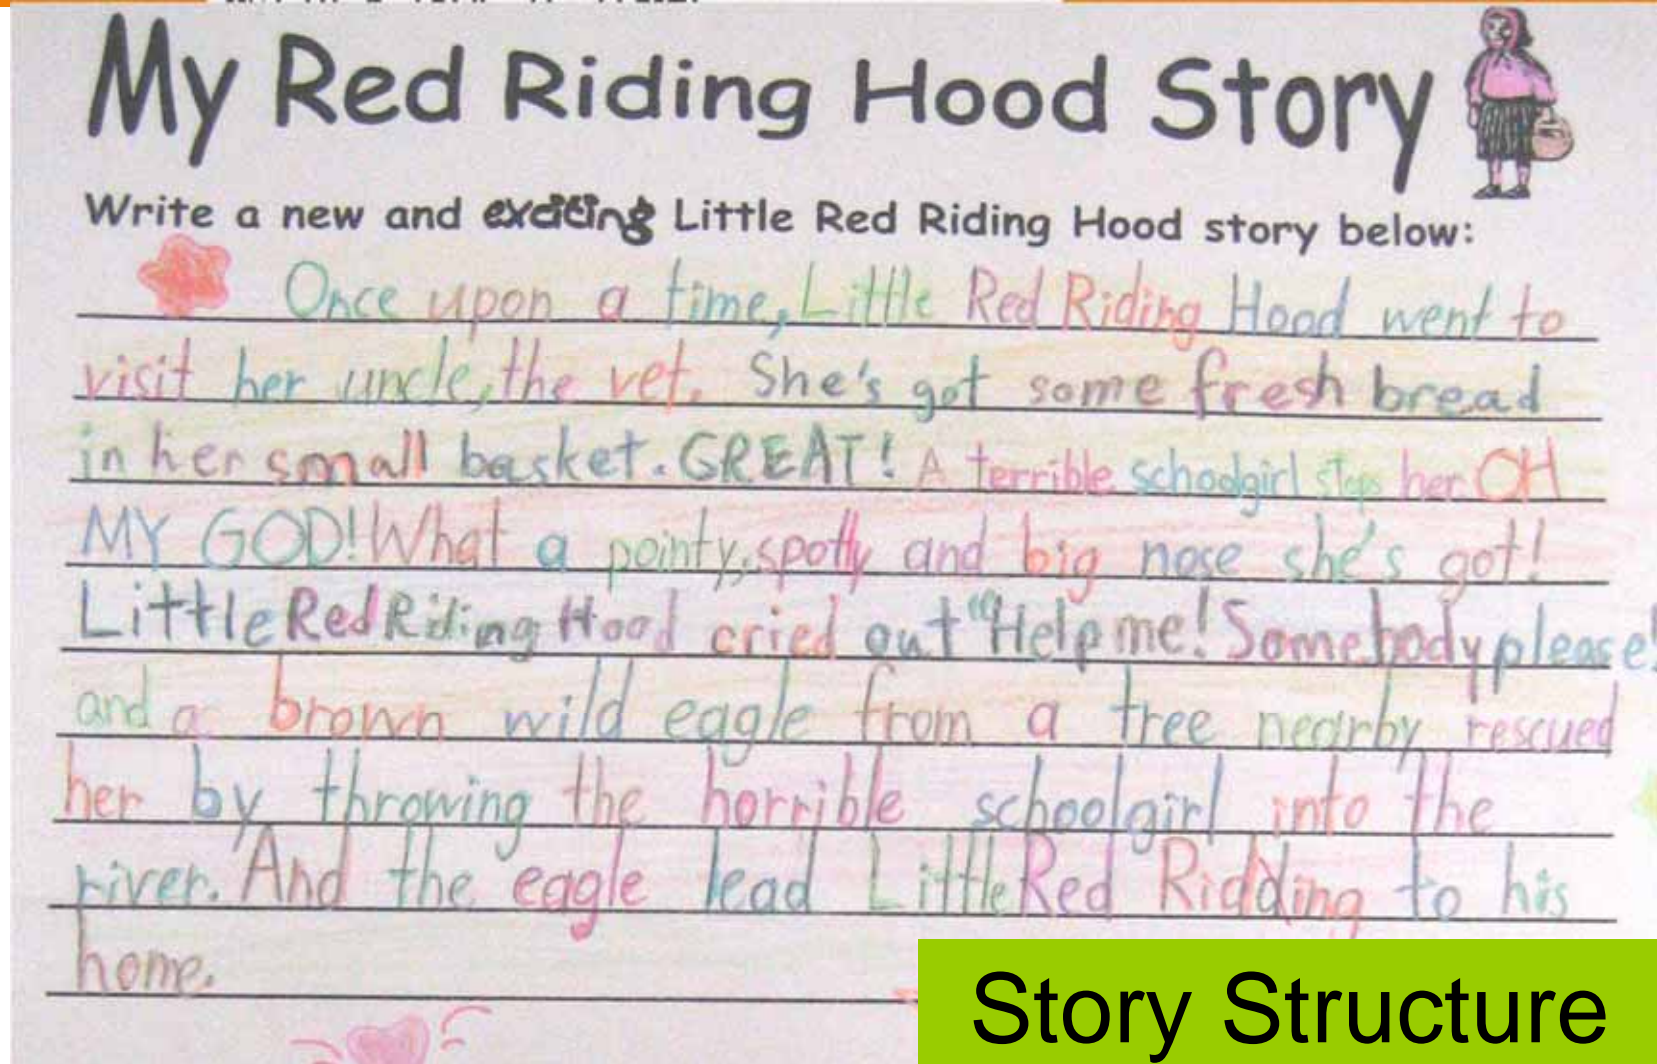 My Red Riding Hood Story
Write a new and exciting Little Red Riding Hood story below:
Once upon a time, Little Red Riding Hood went to
visit her uncle, the vet. She's got some fresh bread
in her small basket. GREAT! A terrible schoolgirl stops her OH
MY GOD! What a pointy, spotty and big nose she's got!
Little Red Riding Hood cried out "Help me! Somebody please!
and a brown wild eagle from a tree nearby rescued
her by throwing the horrible schoolgirl into the
river. And the eagle lead Little Red Ridding to his
home.
Story Structure